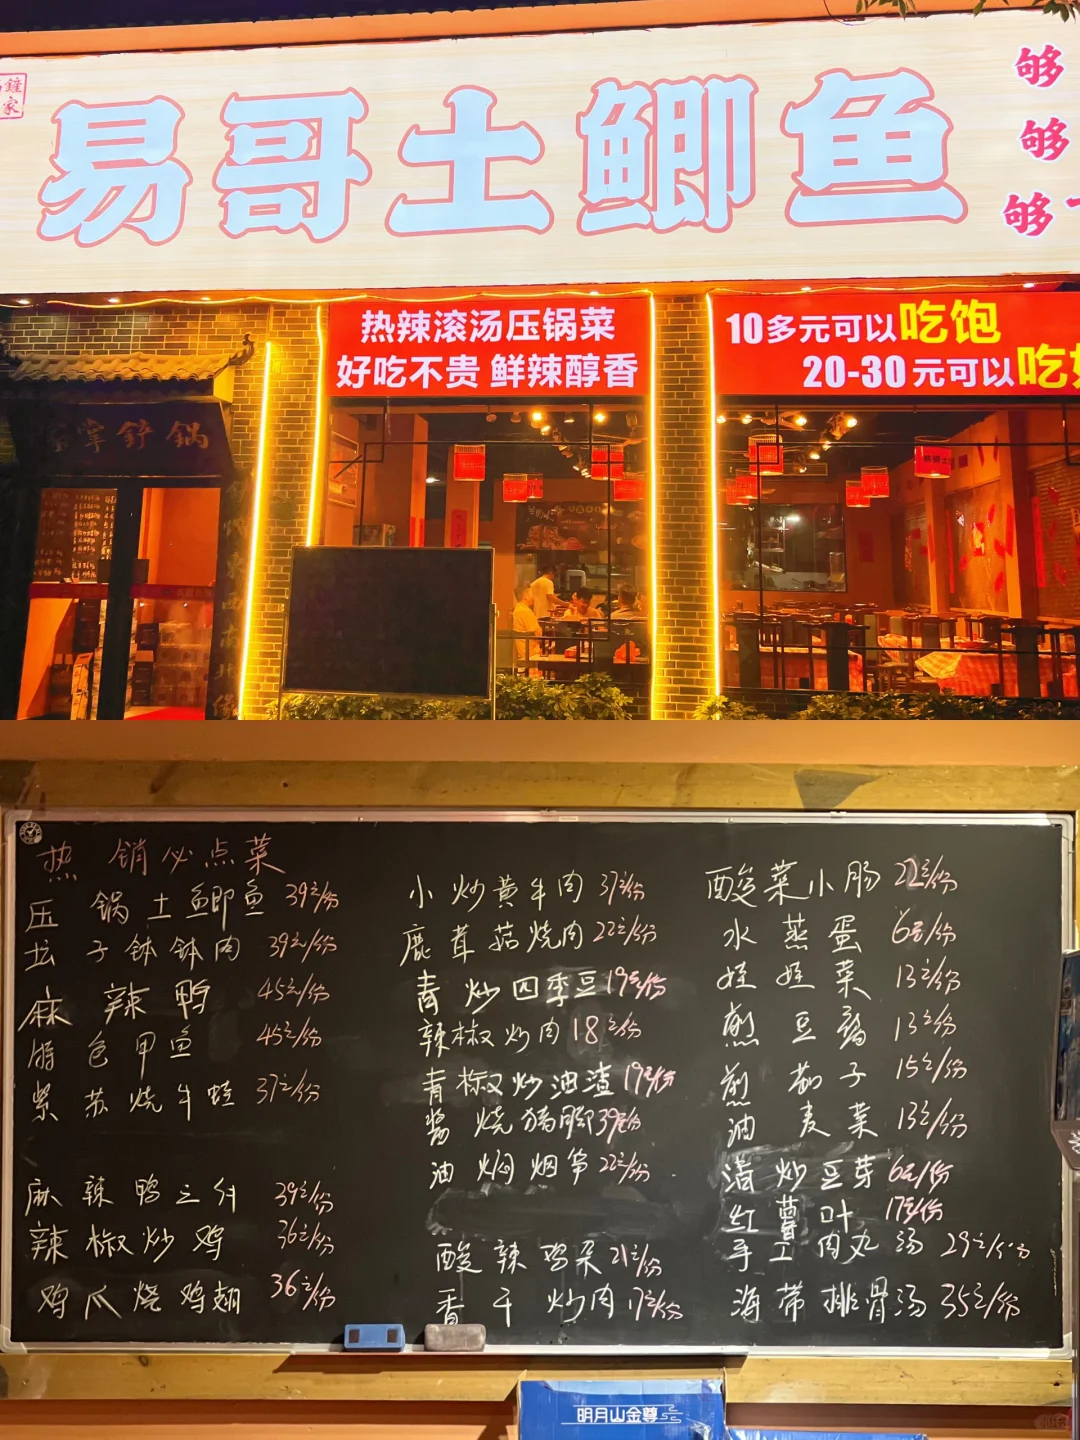 易哥土鲫鱼
够
够
够
热辣滚汤压锅菜
好吃不贵 鲜辣醇香
10多元可以吃饱
20-30元可以吃好
热销必点菜
压锅土鲫鱼 39元/份
坛子钵钵肉 39元/份
麻辣鸭 45元/份
酱色甲鱼 45元/份
紫苏烧牛蛙 37元/份
麻辣鸭三件 39元/份
辣椒炒鸡 36元/份
鸡爪烧鸡翅 36元/份
小炒黄牛肉 37元/份
鹿茸菇烧肉 22元/份
青炒四季豆 19元/份
辣椒炒肉 18元/份
青椒炒油渣 19元/份
酱烧猪脚 39元/份
油焖烟笋 22元/份
酸辣鸡杂 21元/份
香干炒肉 17元/份
酸菜小肠 22元/份
水蒸蛋 6元/份
娃娃菜 13元/份
煎豆腐 13元/份
煎茄子 15元/份
油麦菜 13元/份
清炒豆芽 6元/份
红薯叶 17元/份
手工肉丸汤 29元/份
海带排骨汤 35元/份
明月山金尊